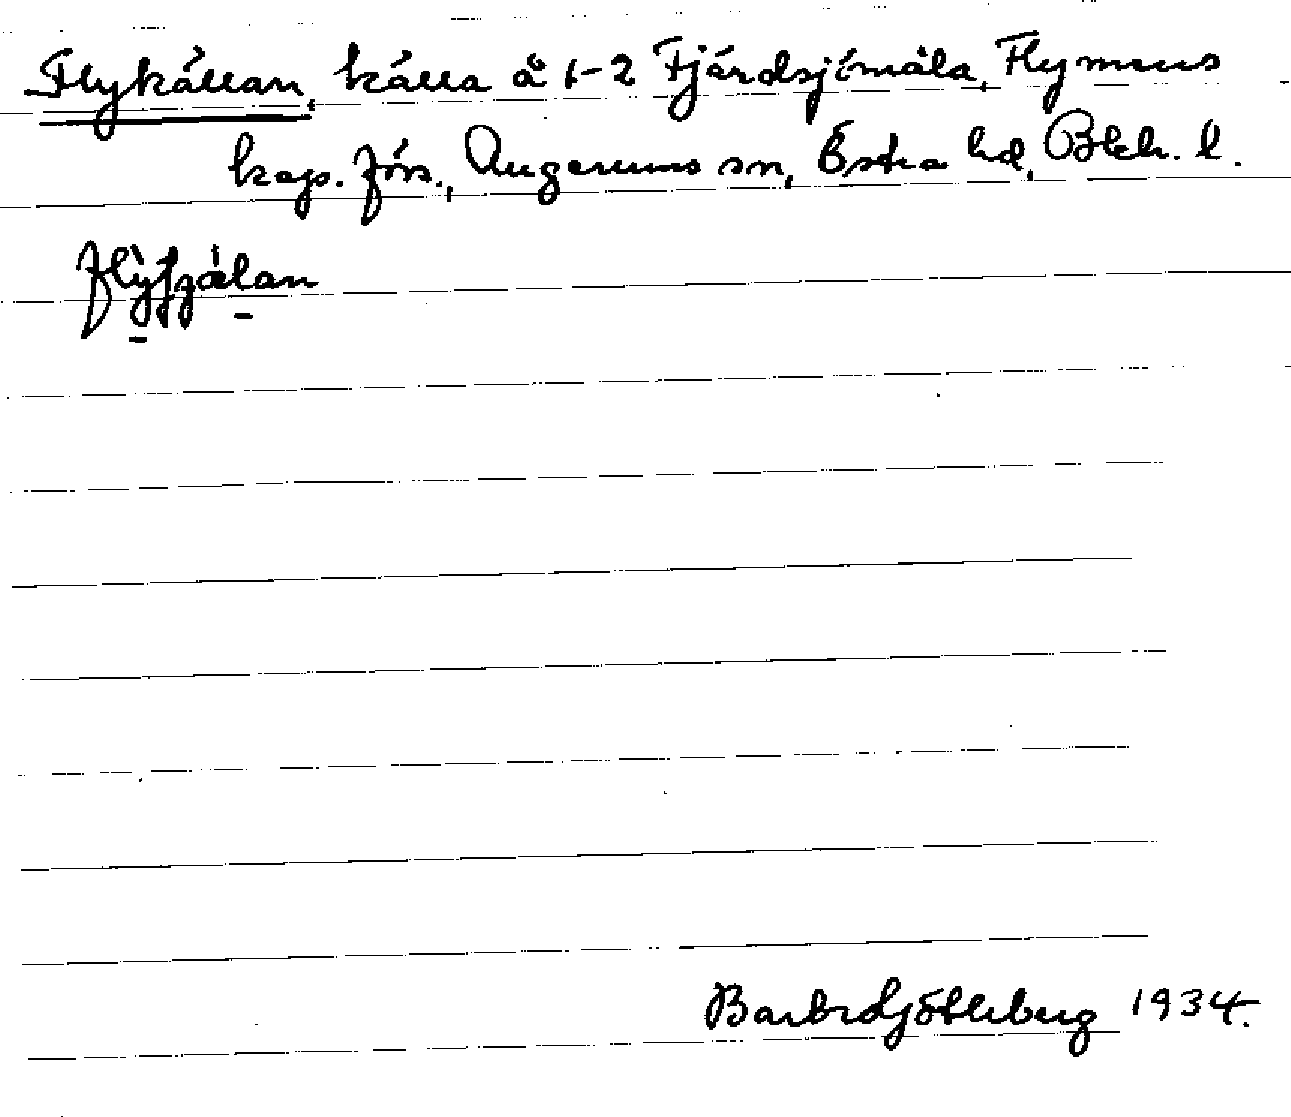 Flykällan, källa å 1-2 Fjärdsjömåla, Flymens
kap. förs., Augerums sn, Östra hd, Blek. l.
Barbro Ljöbleberg 1934.